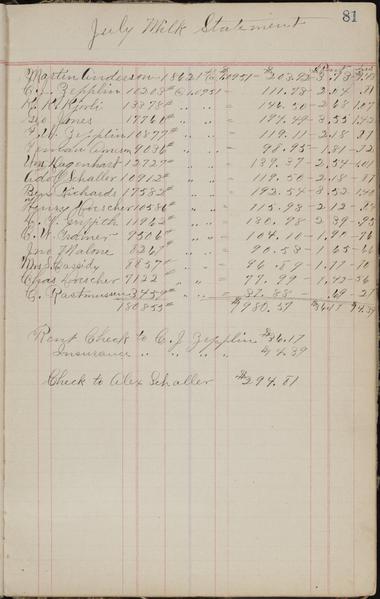 81
July Milk Statement
Martin Anderson 18621# @ $.010951 = $203.92 - 3.73
C. J. Zepplin 10208# @ .010951 = 111.78 - 2.04 .81
13378# " " = 146.50 - 2.68 107
Geo Jones 17760# " " = 194.49 - 3.55 142
F. W. Zepplin 10877# " " = 119.11 - 2.18 .87
9036# " " = 98.95 - 1.81
Wm Hagenhart 12727# " " = 139.37 - 2.54 - 1.01
Adolf Schaller 10912# " " = 119.50 - 2.18 - 87
Ben Richards 17582# " " = 192.54 - 3.52 140
Henry Loescher 10586# " " = 115.93 - 2.12
H. Y. Griffith 11942# " " = 130.78 - 2.39 - .95
C. W. Cramer 9506# " " = 104.10 - 1.90 - 76
Jno Malone 8267# " " = 90.53 - 1.65 - 66
Mrs S. Cassidy 8857# " " = 96.99 - 1.77
Chas Loescher 7122# " " = 77.99 - 1.42 - 56
C. Rastmussen 3459# " " = 37.88 - .69 - 27
180855# $1980.57 $36.17 $14.39
Rent Check to C. J. Zepplin $36.17
Insurance " " " " $14.39
Check to Alex Schaller $294.81